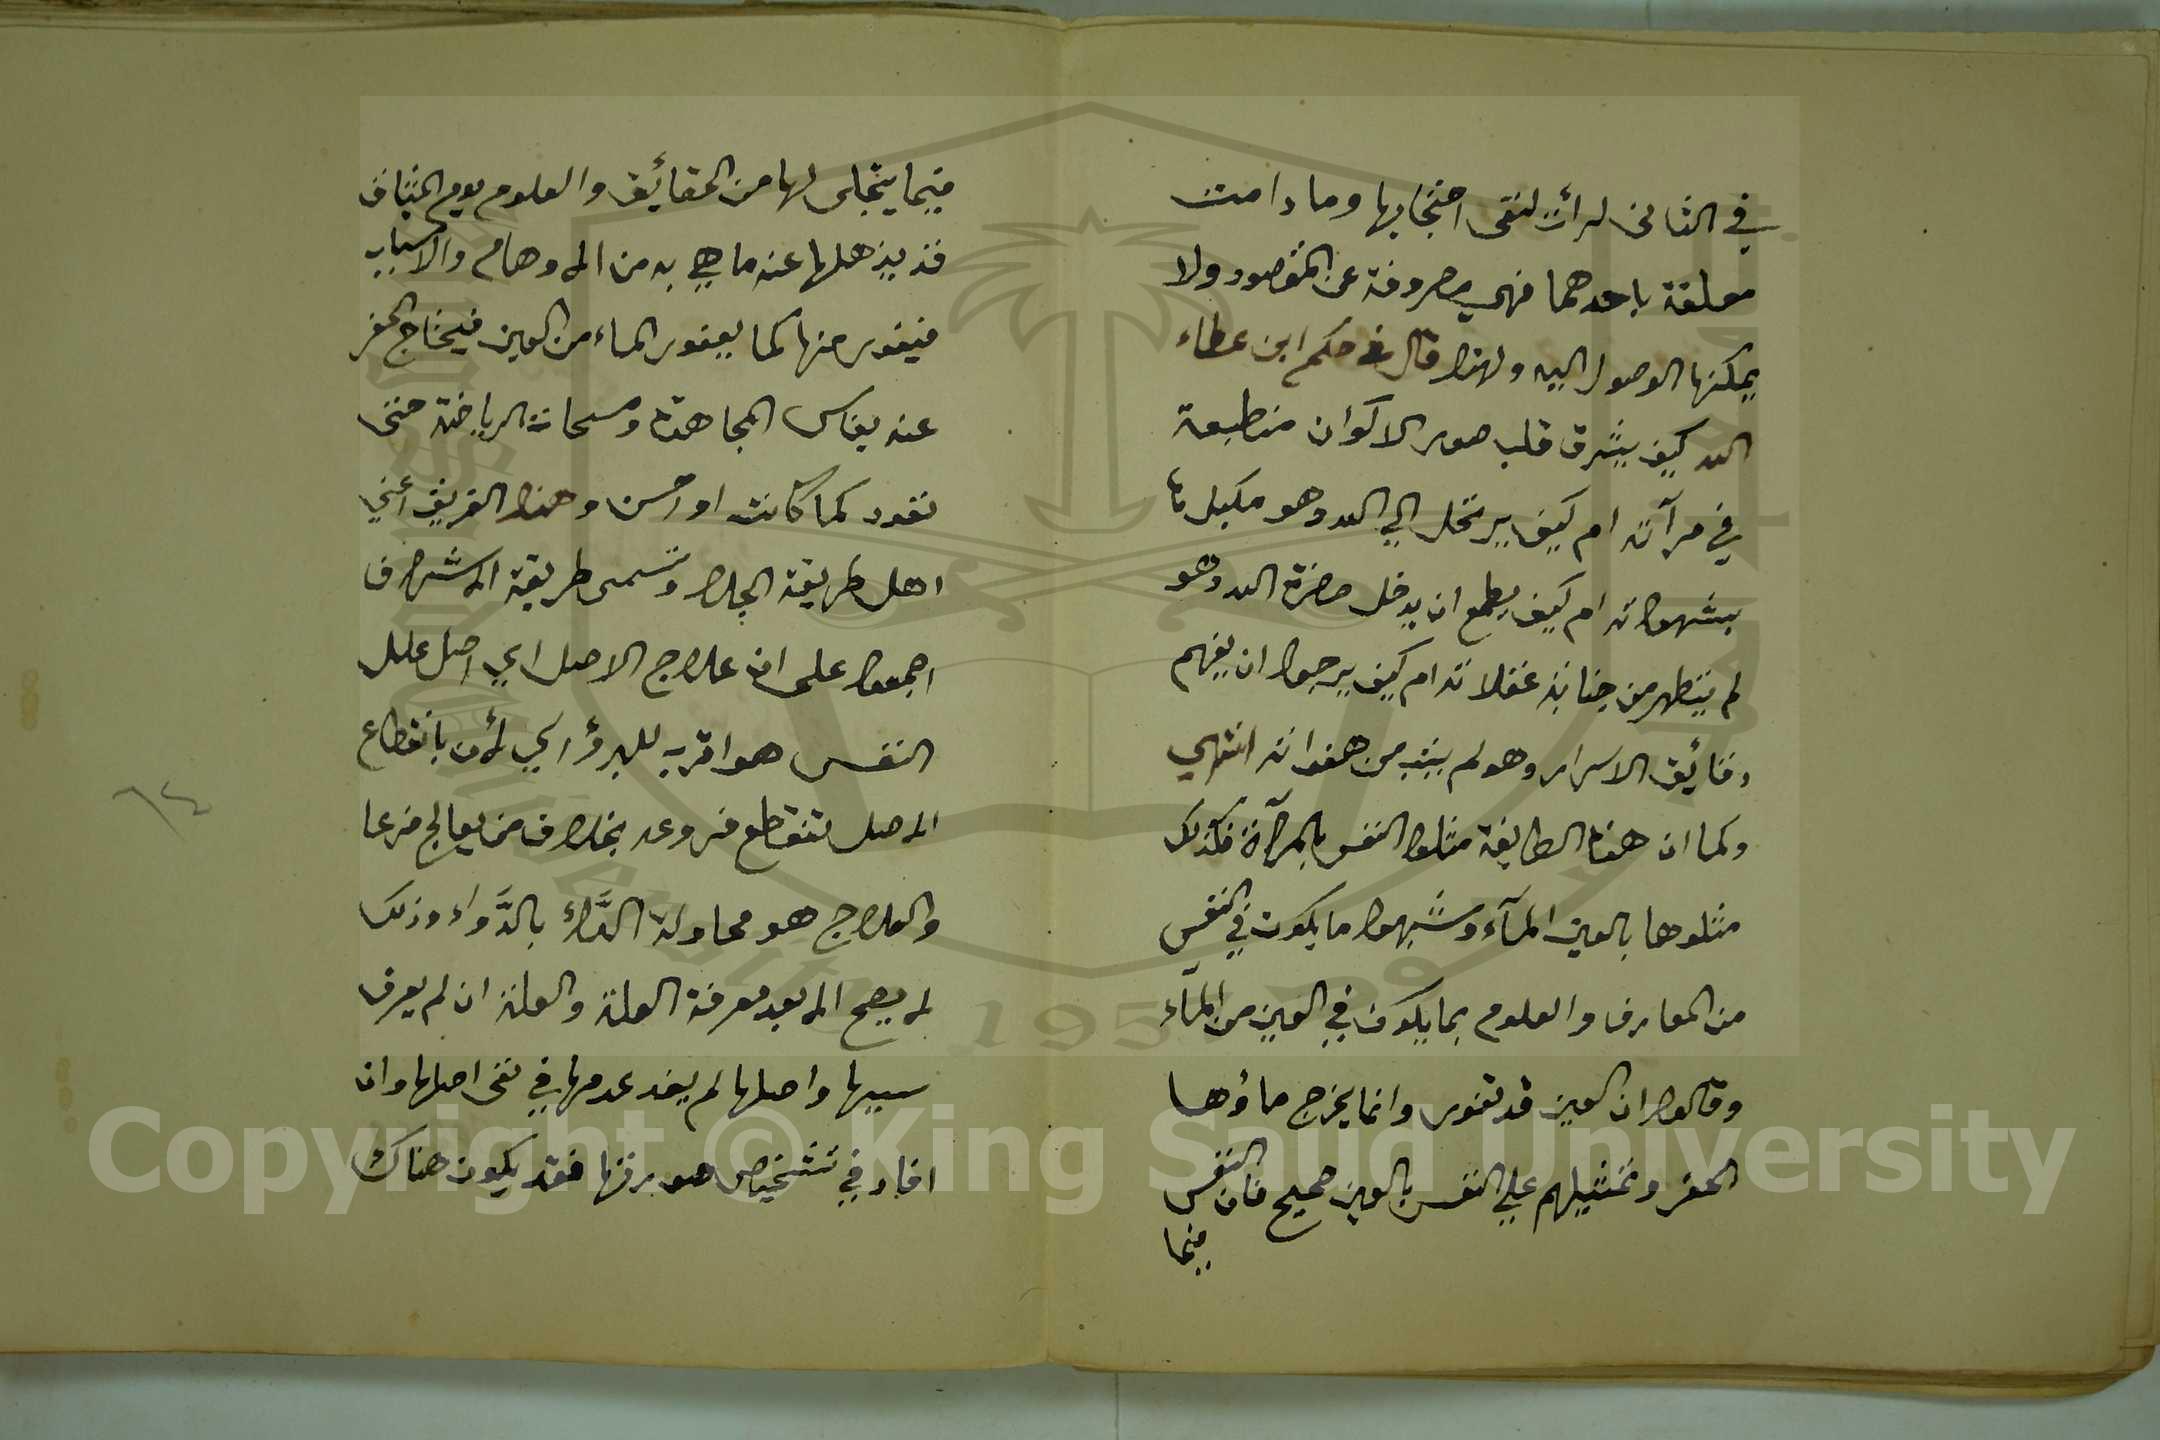 في الثاني لرأت لنقى احتجابها وما دامت
معلقة باحدهما فهي مصروفة عن المقصود ولا
يمكنها الوصول اليه ولهذا قال في حكم ابن عطاء
الله كيف يشرق قلب صور الاكوان منطبعة
في مرآته ام كيف يرتحل الي الله وهو مكبل
بشهواته ام كيف يطمع ان يدخل حضرة الله وهو
لم يتطهر من جنابة غفلاته ام كيف يرجوا ان يفهم
دقائق الاسرار وهو لم يتب من هفواته انتهي
وكما ان هذه الطايفة مثلوا النفس بالمرآة فكذلك
مثلوها بالعين المآء وشبهوا ما يكون في النفس
من المعارف والعلوم بما يكون في العين من المآء
وقالوا ان العين قد تغور وانما يخرج ماؤها
الحفر وتمثيلهم علي النفس بالعين صحيح فان النفس
فيما
فيما يتجلى لها من الحقائق والعلوم يوم الميثاق
قد يذهلها عنه ما هي به من الاوهام والاسباب
فيغور منها كما يغور الماء من العين فيحتاج الحفر
عنه بفاس المجاهدة ومسحات الرياضة حتى
تعود كما كانت او احسن وهذا الفريق اعني
اهل طريقة الجلا وتسمى طريقة الاشراف
اجمعوا على ان علاج الاصل اي اصل علل
النفس هو اقرب للبرؤ اي لأن بانقطاع
الاصل تنقطع فروعه بخلاف من يعالج فرعا
والعلاج هو محاولة الدَّاء بالدَّواء وذلك
لا يصح الا بعد معرفة العلة والعلة ان لم يعرف
سببها واصلها لم يفد عدمها في نفى اصلها وان
افاد في تشخيص صورتها فقد يكون هناك
١٤
Copyright © King Saud University
1957